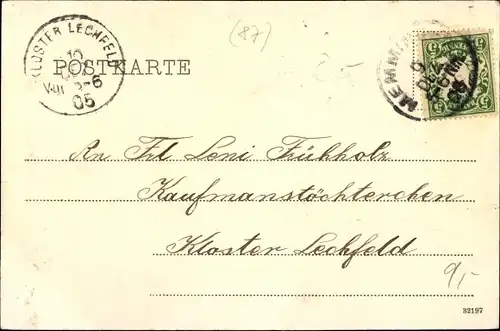 (87)
KLOSTER LECHFELD
10
05
POSTKARTE
MEMMI
5
An Frl Leni Frühholz
Kaufmanstöchterchen
Kloster Lechfeld
9,-
32197